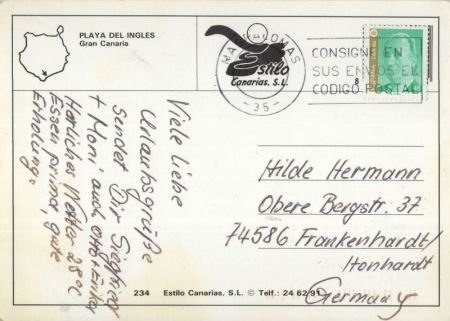 PLAYA DEL INGLES
Gran Canaria
MASPALOMAS
- 35 -
Estilo
Canarias, S.L.
CONSIGNE EN
SUS ENVIOS EL
CODIGO POSTAL
8
Viele liebe
Urlaubsgrüße
sendet Dir Siegfried
+ Moni auch
Herrliches Wetter 28°C
Essen prima, gute
Erholung.
Hilde Hermann
Obere Bergstr. 37
74586 Frankenhardt/
Honhardt
Germany
234 Estilo Canarias, S.L. © Telf.: 24 62 91